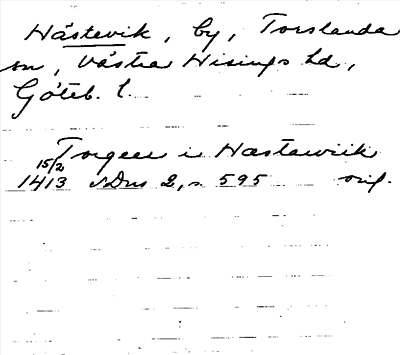 Hästevik, by, Torslanda
sn, Västra Hisings hd,
Göteb. l.
Torgeer i Hastawiik
15/2
1413 SDns 2, s. 595 orig.